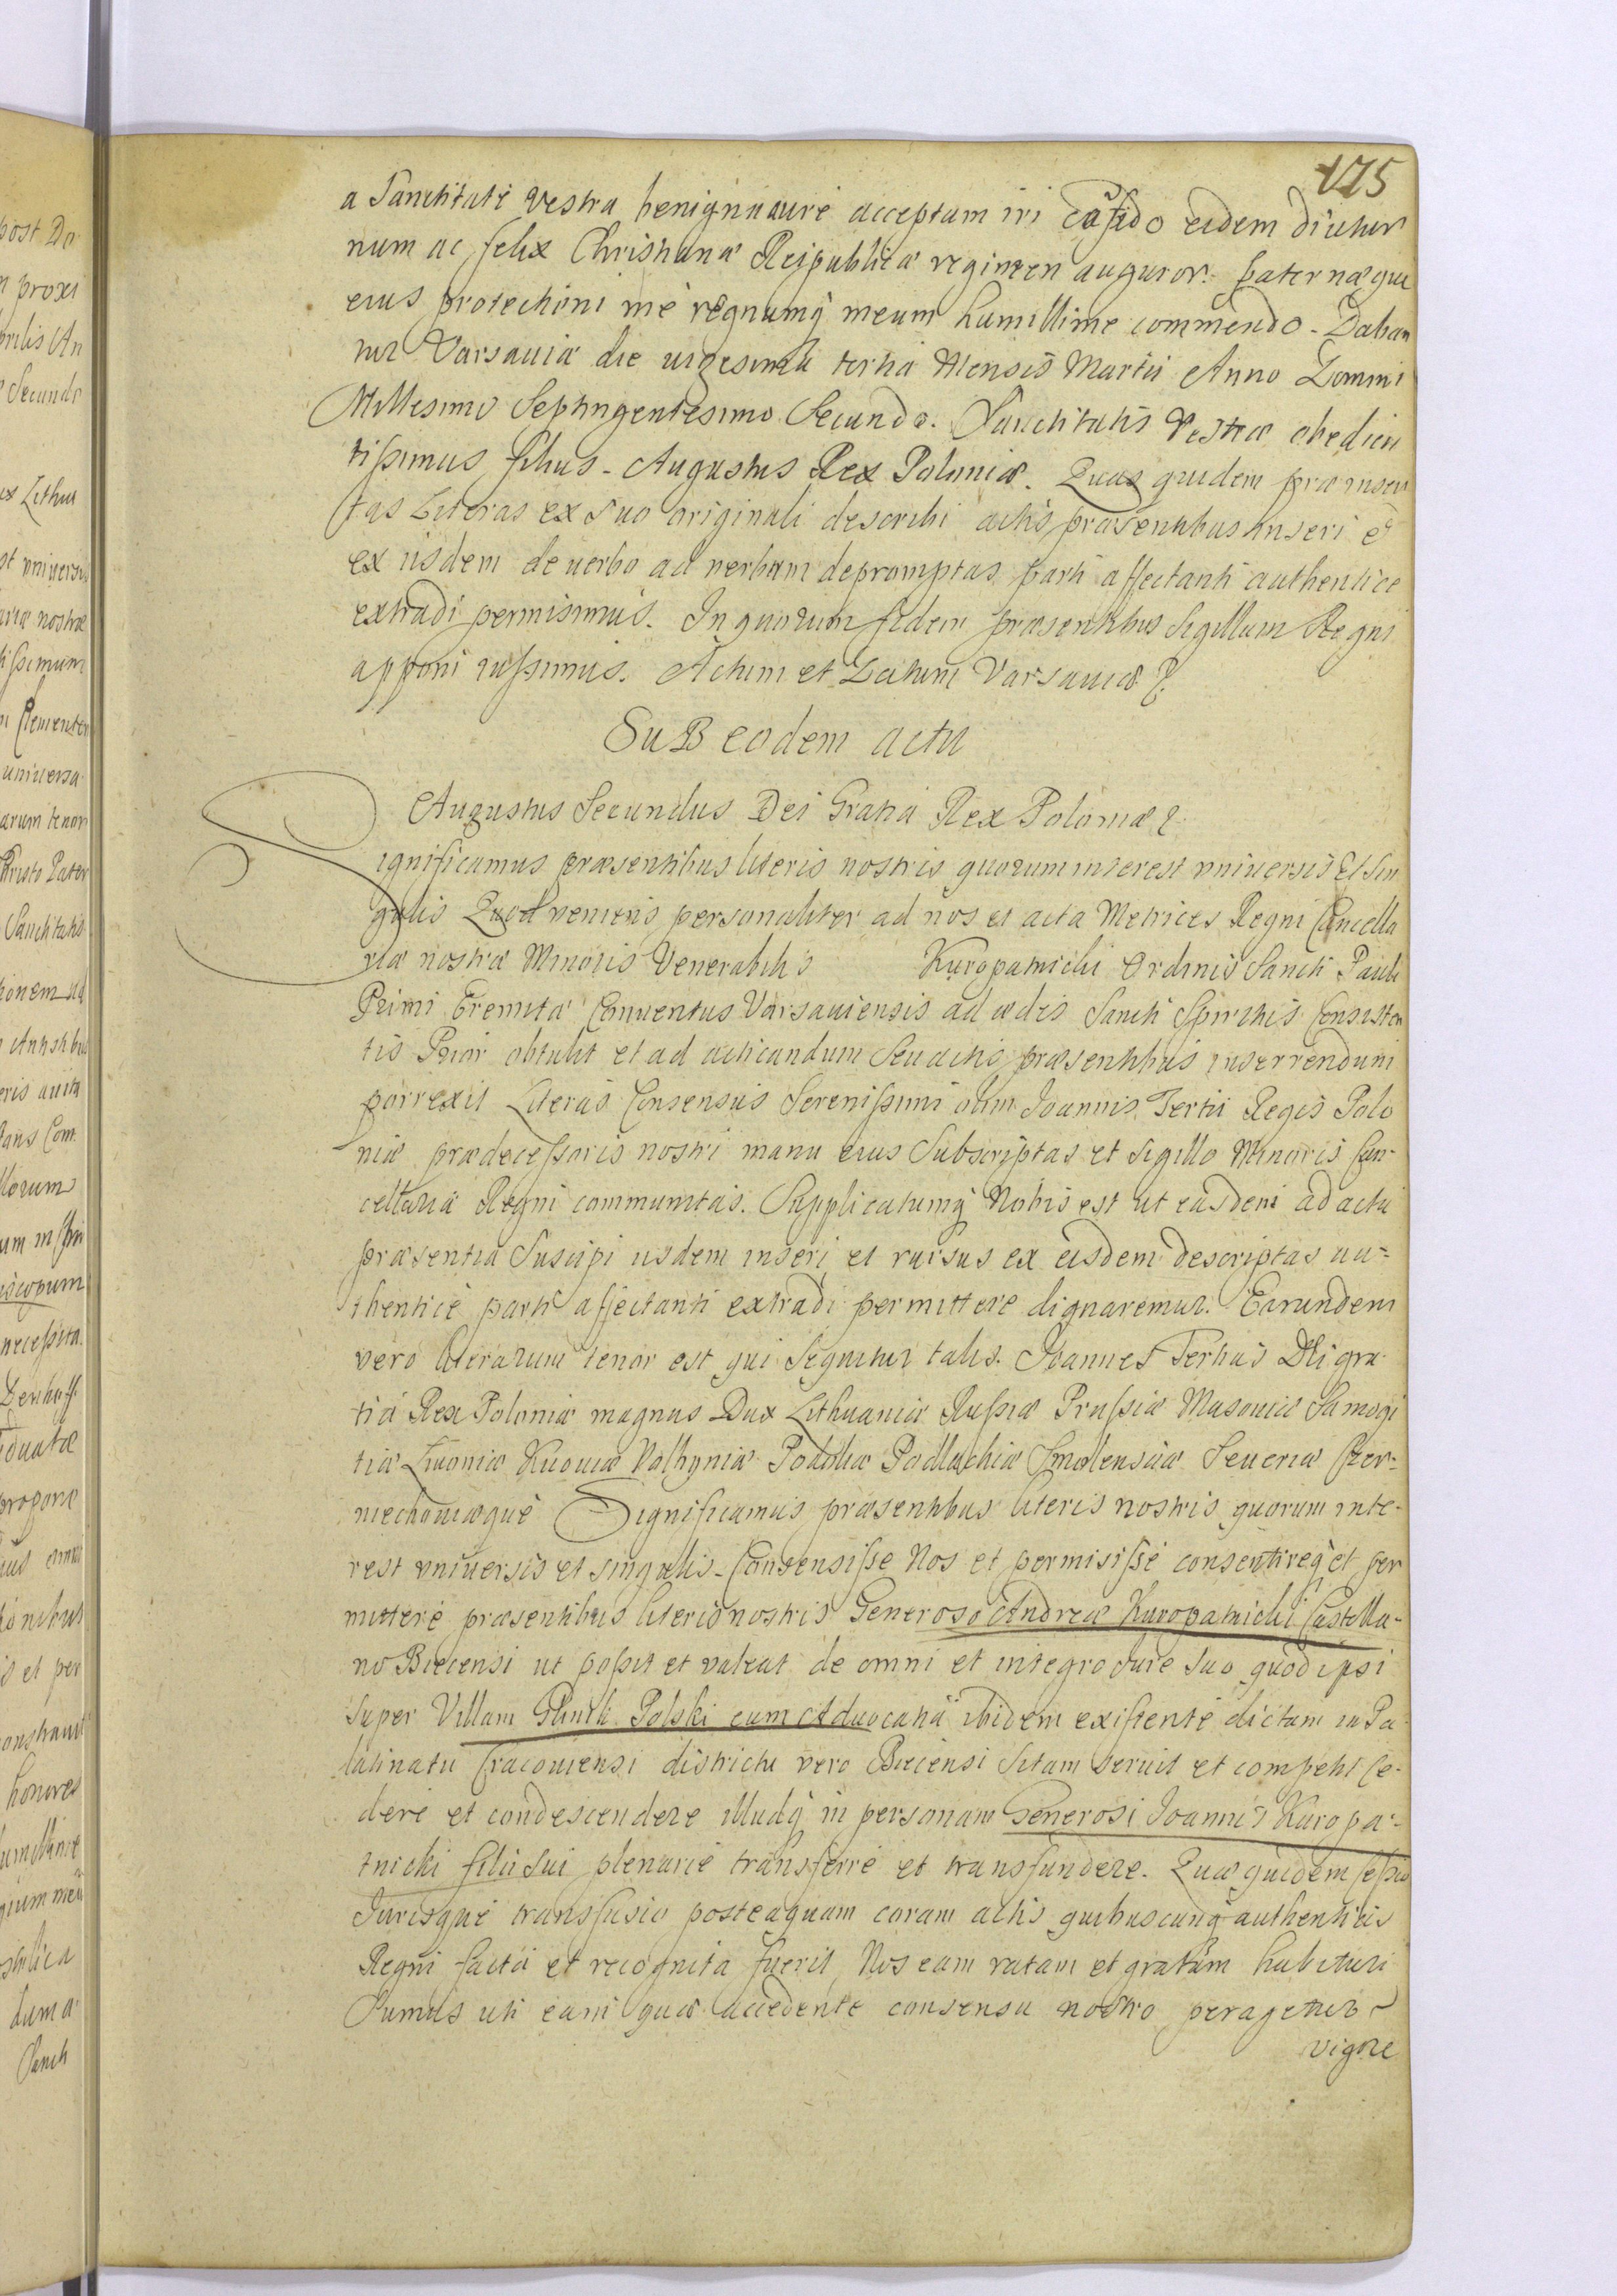 175
a Sanctitate Vestra benigna aure acceptum iri cofido eidem diutur
num ac felix Christianæ Reipublicæ regimen auguror. paternæque
eius protectioni me regnumq meum humillime commendo - Daban
tur Varsauiæ die uigesima tertia Mensis Martii Anno Domini
Millesimo Septingentesimo Secundo. Sanctitatis Vestræ obedien
tissimus filius - Augustus Rex Poloniæ. Quas quidem præinser
tas Literas ex suo originali describi actis præsentibus inseri et
ex iisdem de uerbo ad uerbum depromptas parti affectanti authentice
extradi permisimus. In quorum fidem præsentibus Sigillum Regni
apponi iussimus. Actum et Datum Varsauiæ &.
SuB eodem actu
Augustus Secundus Dei Gratia Rex Poloniæ &.
Significamus præsentibus literis nostris quorum interest vniuersis Et sin
gulis Quod veniens personaliter ad nos et acta Metrices Regni Cancella
riæ nostræ Minoris Venerabilis Kuropatnicki Ordinis Sancti Pauli
Primi Eremitæ Conuentus Varsauiensis ad ædes Sancti Spiritus Consisten
tis Prior obtulit et ad acticandum seu actis præsentibus inserrendum
porrexit Literas Consensus Serenissimi olim Joannis Tertii Regis Polo
niæ prædecessoris nostri manu eius Subscriptas et sigillo Minoris Can-
cellariæ Regni communitas. Supplicatumq Nobis est ut easdem ad acta
præsentia Suscipi iisdem inseri et rursus ex eisdem descriptas au=
thentice parti affectanti extradi permittere dignaremur. Earundem
vero literarum tenor est qui sequitur talis. Joannes Tertius Dei gra-
tia Rex Poloniæ magnus Dux Lithuaniæ Russiæ Prussiæ Masouiæ Samogi
tiæ Liuoniæ Kiouiæ Volhyniæ Podoliæ Podlachiæ Smolensciæ Seueriæ Czer=
niechouiæque Significamus præsentibus literis nostris quorum inte-
rest vniuersis et singulis - Consensisse Nos et permisisse consentireq et per
mittere præsentibus literis nostris Generoso Andreæ Kuropatnicki Castella-
no Biecensi ut possit et valeat de omni et integro Jure suo quod ipsi
super Villam Glinik Polski cum Aduocatia ibidem existente dictam in Pa
latinatu Cracouiensi districtu vero Biecensi sitam seruit et competit ce-
dere et condescendere illudq in personam Generosi Joannis Kuropa-
tnicki filii sui plenarie transferre et transfundere. Quæ quidem cessio
Jurisque transfusio posteaquam coram actis quibuscunq authenticis
Regni facta et recognita fuerit, Nos eam ratam et gratam habituri
Sumus uti eam quæ accedente consensu nostro peragetur
vigore